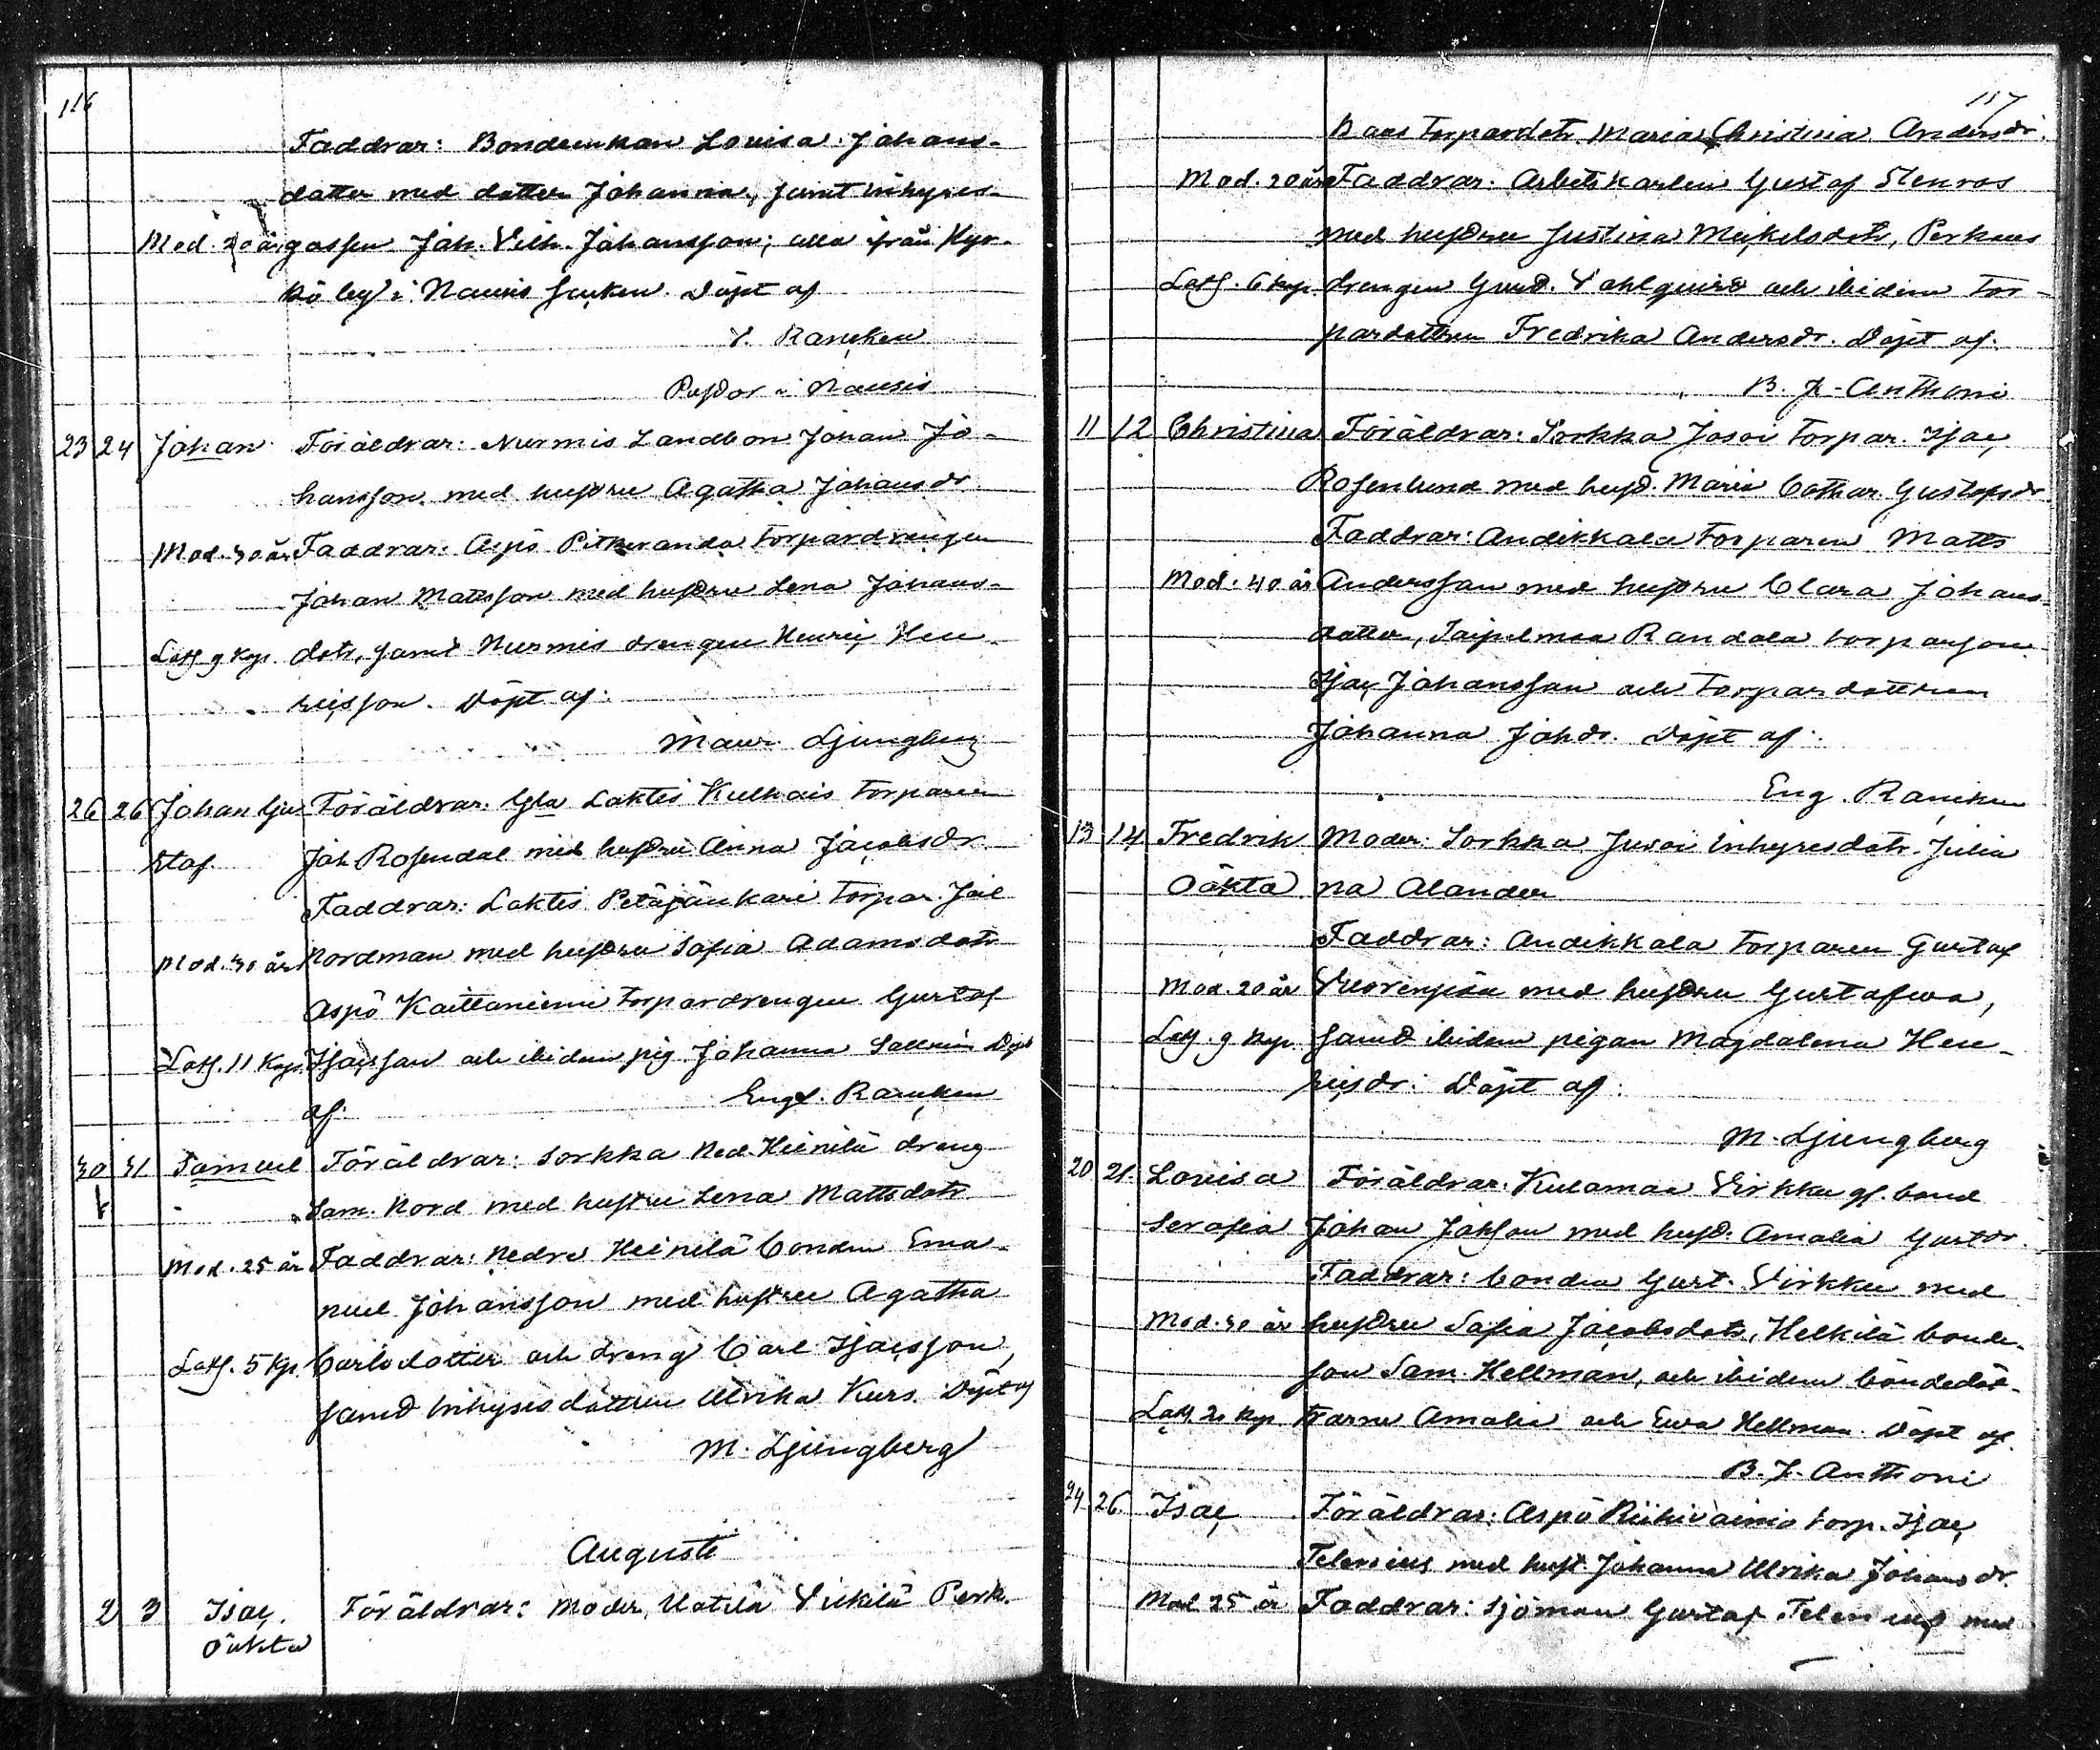 116
Faddrar: Bondeenkan Lovisa Johans-
dotter med dotter Johanna, samt inhyses-
Mod. 20 år gossen Joh. Vilh. Johansson; alla från Kyr-
kö by i Nousis socken. Döpt af
Rancken
Pastor i Nousis
23 24 Johan Föräldrar: Nurmis Landbon Johan Jo-
hansson med hustru Agatha Johansdr.
Mod. 30 år Faddrar: Aspö Pitkäranda torpardrengen
Johan Mattsson med hustru Lena Johans-
Lösh. 9 kop. dotr, samt Nurmis drengen Henric Hen-
ricsson. Döpt af:
Maur. Ljungberg
26 26 Johan Gu- Föräldrar: Gla Laktis Kulhais torparen
staf Joh. Rosendal med hustru Anna Jacobsdr.
Faddrar: Laktis Petäjänkari torpar. Joel
Mod. 30 år Nordman med hustru Sofia Adamsdotr
Aspö Kaittaniemi torpardrengen Gustaf
Lösh. 11 kop. Isacsson och ibidem pig. Johanna Döpt
af: Eugé. Rancken
30 31 Samuel Föräldrar: Sorkka Ned. Heinilä dreng
Sam. Nord med hustru Lena Mattsdotr.
Mod. 25 år Faddrar: Nedre Heinilä bonden Ema-
nuel Johansson med hustru Agatha
Lösh. 5 kp. Carlsdotter och dreng Carl Isacsson,
samt inhysesdottren Ulrika Kurs. Döpt af
M. Ljungberg
Augusti
2 3 Isac, Föräldrar: Moder, Uotila Perk.
Oäkta
117
Baas torpardotr. Maria Christina Andersdr.
Mod. 20 år Faddrar: Arbetskarlen Gustaf Stenros
med hustru Justina Meikelsdotr, Perkens
Lösh. 6 kop. drengen Gust. Vahlqvist och ibidem tor-
pardottren Fredrika Andersdr. Döpt af:
B. F. Anthoni
11 12 Christina Föräldrar: Sorkka Josoi torpar. Isac,
Rosenlund med hust. Maria Cathar. Gustafsdr
Faddrar: Andikkala torparen Matts
Mod. 40 år Andersson med hustru Clara Johans-
dotter, Taipelmaa Randala torparson
Isac Johansson och torpardottren
Johanna Johdr. Döpt af:
Eug. Rancken
13 14 Fredrik Moder: Sorkka Jusoi inhysesdotr. Julia
Oäkta. na Alander
Faddrar: Andikkala torparen Gustaf
Mod. 20 år Vuorenpää med hustru Gustafwa,
Lösh. 9 kop. samt ibidem pigan Magdalena Hen-
ricsdr. Döpt af:
M. Ljungberg
20 21. Lovisa Föräldrar: Kulamaa Virkku gf. bond
Serafia Johan Johsson med hust. Amalia Gustdr.
Faddrar: bonden Gust. Virkku med
Mod. 30 år hustru Sofia Jacobsdotr, Heikilä bonde-
son Sam. Hellman, och ibidem bondedöt-
Lösh 20 kop. trarne Amalia och Eva Hellman. Döpt af.
B. F. Anthoni
24 26 Isac Föräldrar: Aspö Riihivainio torp. Isac,
Telenius med hust. Johanna Ulrika Johansdr.
Mod 25 år Faddrar: Sjöman Gustaf Telenius med